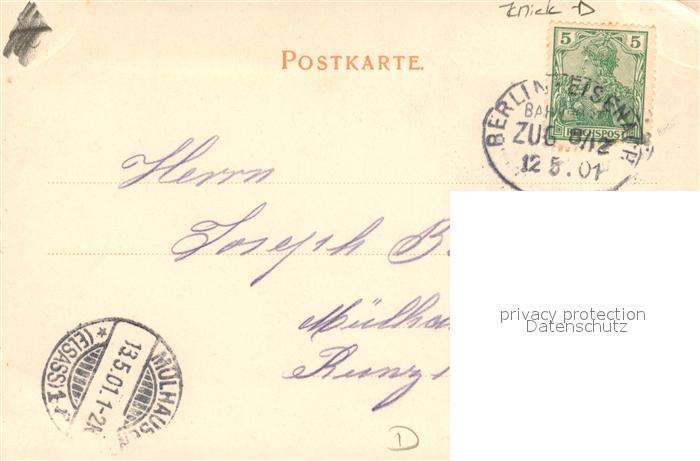 Knick -D
POSTKARTE.
5 5
REICHSPOST
BERLIN-EISENACH
BAHNPOST
ZUG 8/12
12 5.01
Herrn
Joseph B
Mülha
privacy protection
Datenschutz
MÜLHAUSEN
13.5.01.1-2N
*(ELSASS)1.r
D